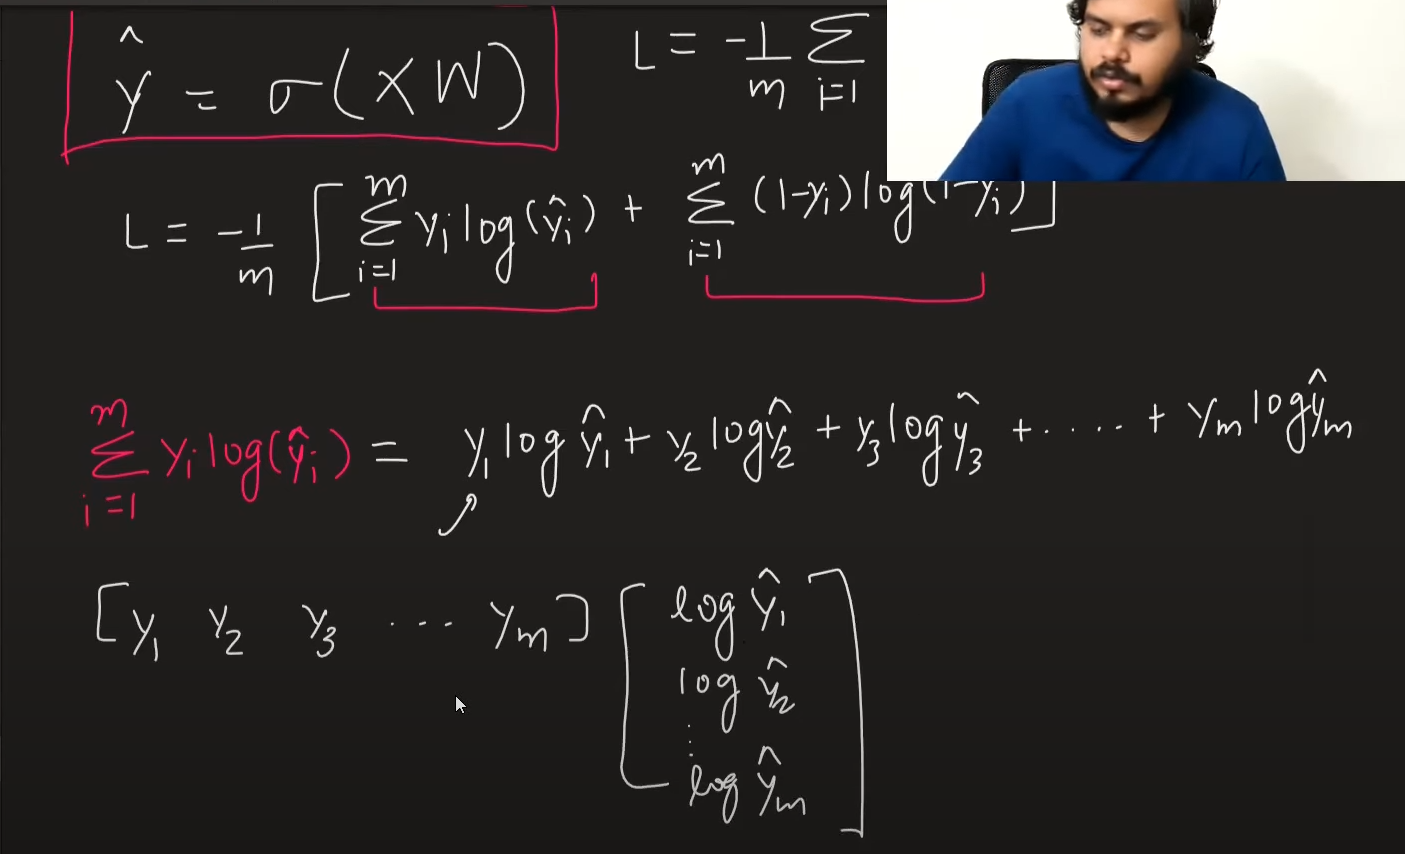 ŷ = σ(XW)
L = -1/m Σ_{i=1}
L = -1/m [ Σ_{i=1}^{m} yᵢ log(ŷᵢ) + Σ_{i=1}^{m} (1-yᵢ) log(1-yᵢ) ]
Σ_{i=1}^{m} yᵢ log(ŷᵢ) = y₁ log ŷ₁ + y₂ log ŷ₂ + y₃ log ŷ₃ + ..... + yₘ log ŷₘ
[y₁ y₂ y₃ ... yₘ] [log ŷ₁
log ŷ₂
⋮
log ŷₘ]